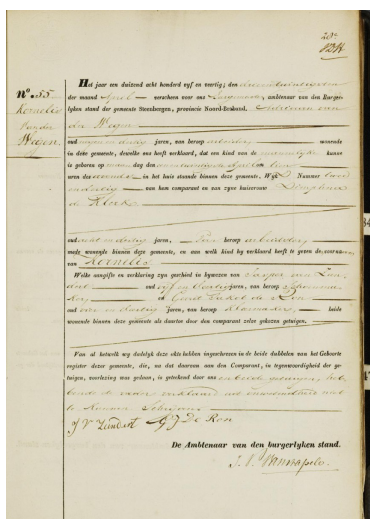 N.º 55
Kornelis
van der
Wegen
Het jaar een duizend acht honderd vyf en vertig, den
der maand April verscheen voor ons Burgemeester, ambtenaar van den Burger-
lyken stand der gemeente Steenbergen, provincie Noord-Braband, Adrianus van
der Wegen
oud en dertig jaren, van beroep arbeider, wonende
in deze gemeente, dewelke ons heeft verklaard, dat een kind van de mannelyke kunne
is geboren op den April om tien
uren des avonds in het huis staande binnen deze gemeente, Wyk Nummer
van hem comparant en van zyne huisvrouw Dimphena
de Klerk
oud acht en dertig jaren, van beroep arbeidster
mede wonende binnen deze gemeente, en aan welk kind hy verklaard heeft te geven de voornaam
van Kornelis
Welke aangifte en verklaring zyn geschied in bywezen van Jasper van Zun-
dert oud vyf en veertig jaren, van beroep
en Gerrit de Ron
oud en dertig jaren, van beroep beide
wonende binnen deze gemeente als daartoe door den comparant zelve gekozen getuigen.
Van al hetwelk wy dadelyk deze akte hebben ingeschreven in de beide dubbelen van het Geboorte
register dezer gemeente, die, na dat daarvan aan den Comparant, in tegenwoordigheid der ge-
tuigen, voorlezing was gedaan, is geteekend door ons en beide getuigen, heb-
bende de vader verklaard uit onwetendheid niet
te kunnen schryven
J V Zundert G J De Ron
De Ambtenaar van den burgerlyken stand.